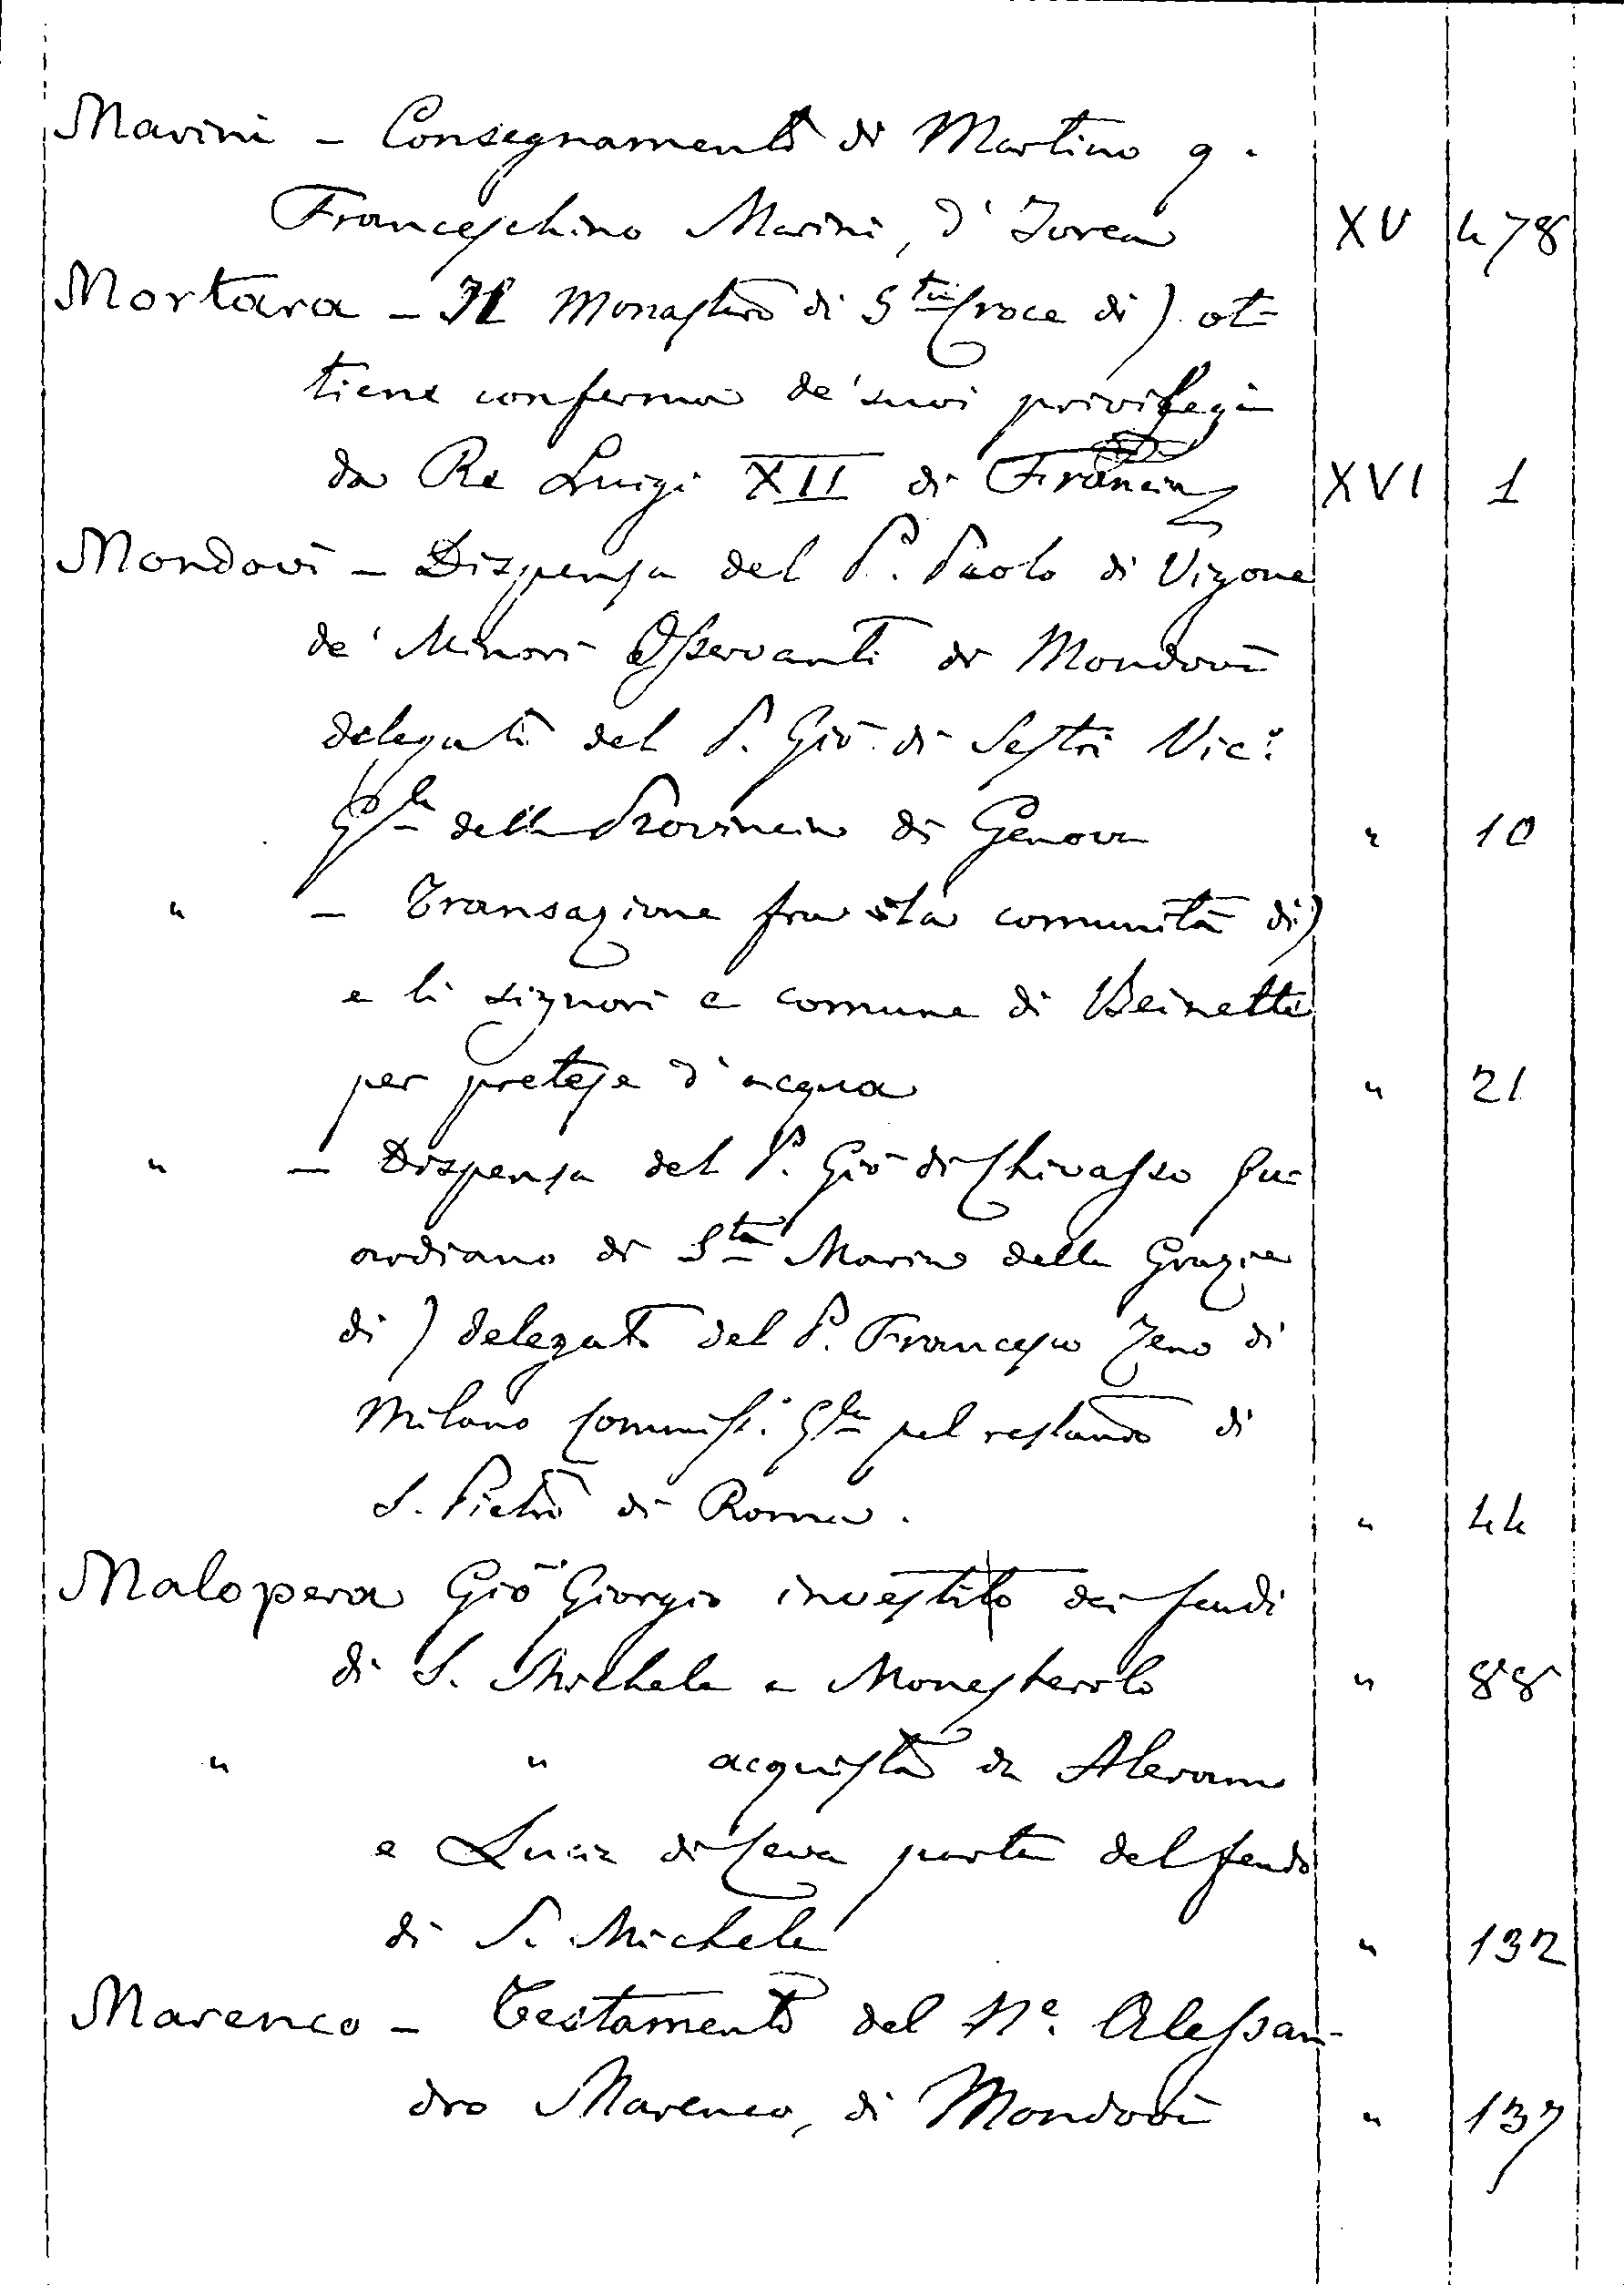 Marini - Consegnamento di Martino q.
Franceschino Marini, d'Ivrea XV 478
Mortara - Il Monastero di S.ta Croce di) ot=
tiene conferma de' suoi privilegi
da Re Luigi XII di Francia XVI 1
Mondovì - Dispensa del P. Paolo di Vigone
de' Minori Osservanti di Mondovì
delegato del P. Gio. di Sestri Vic.o
G.le della Provincia di Genova " 10
" - Transazione fra la comunità di)
e li signori e comune di Beinette
per pretese d'acqua " 21
" - Dispensa del P. Gio di Chivasso Gu=
ardiano di S.ta Maria delle Grazie
di) delegato del P. Francesco Zeno di
Milano Commiss. G.le pel restauro di
S. Pietro di Roma. " 44
Malopera Gio Giorgio investito dei feudi
di S. Michele e Monesterolo " 88
" " acquista da Aleramo
e Luca di Ceva parte del feudo
di S. Michele " 132
Marenco - Testamento del N.e Alessan-
dro Marenco, di Mondovì " 137